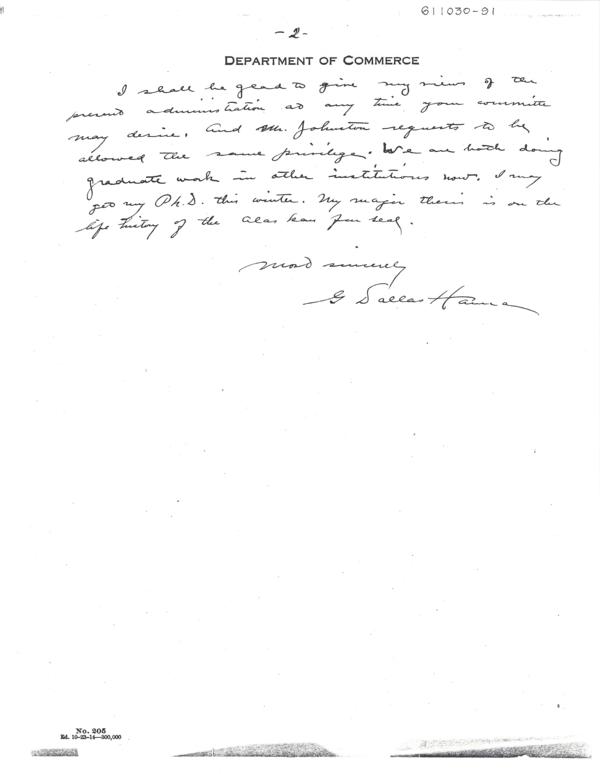 611030-91
-2-
DEPARTMENT OF COMMERCE
I shall be glad to give my views of the
present administration at any time your committee
may desire. And Mr. Johnston requests to be
allowed the same privilege. We are both doing
graduate work in other institutions now. I may
get my Ph.D. this winter. My major thesis is on the
life history of the Alaskan fur seal.
Most sincerely
G Dallas Hanna
No. 205
Ed. 10-23-14-300,000